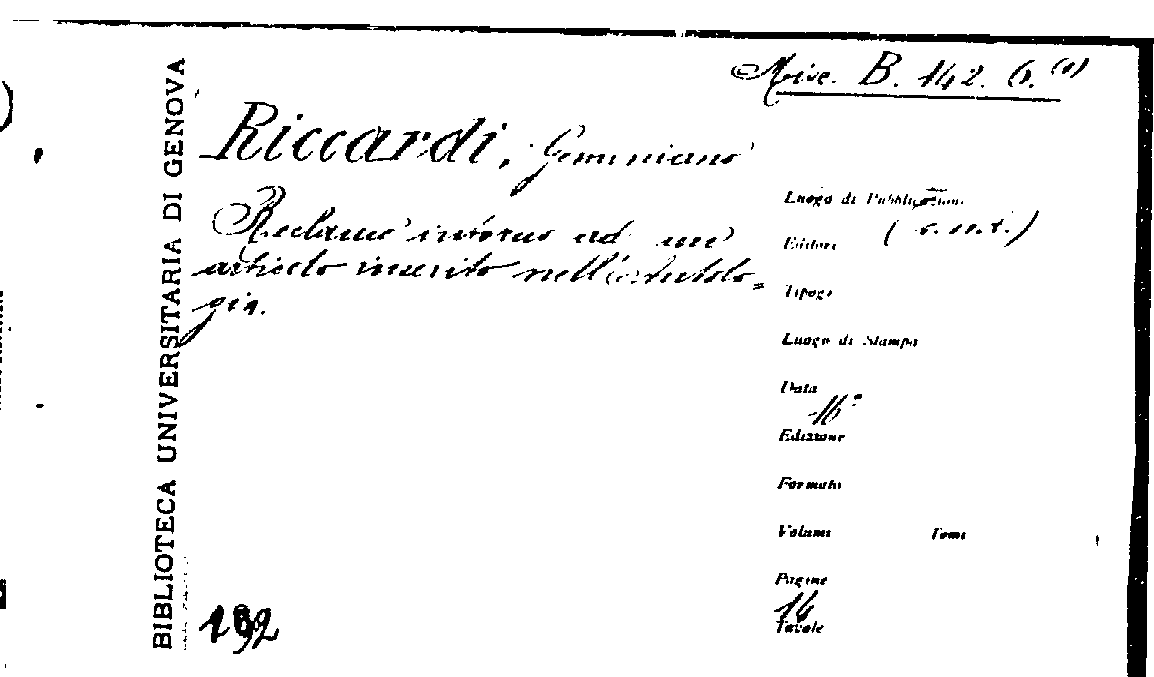 BIBLIOTECA UNIVERSITARIA DI GENOVA
Misc. B. 142. 6. (1)
Riccardi, Geminiano
Reclamo intorno ad un
articolo inserito nell'antolo=
gia.
Luogo di Pubblicazione
Editore
Tipogr
Luogo di Stampa
Data
16°
Edizione
Formato
Volumi Tomi
Pagine
14
Tavole